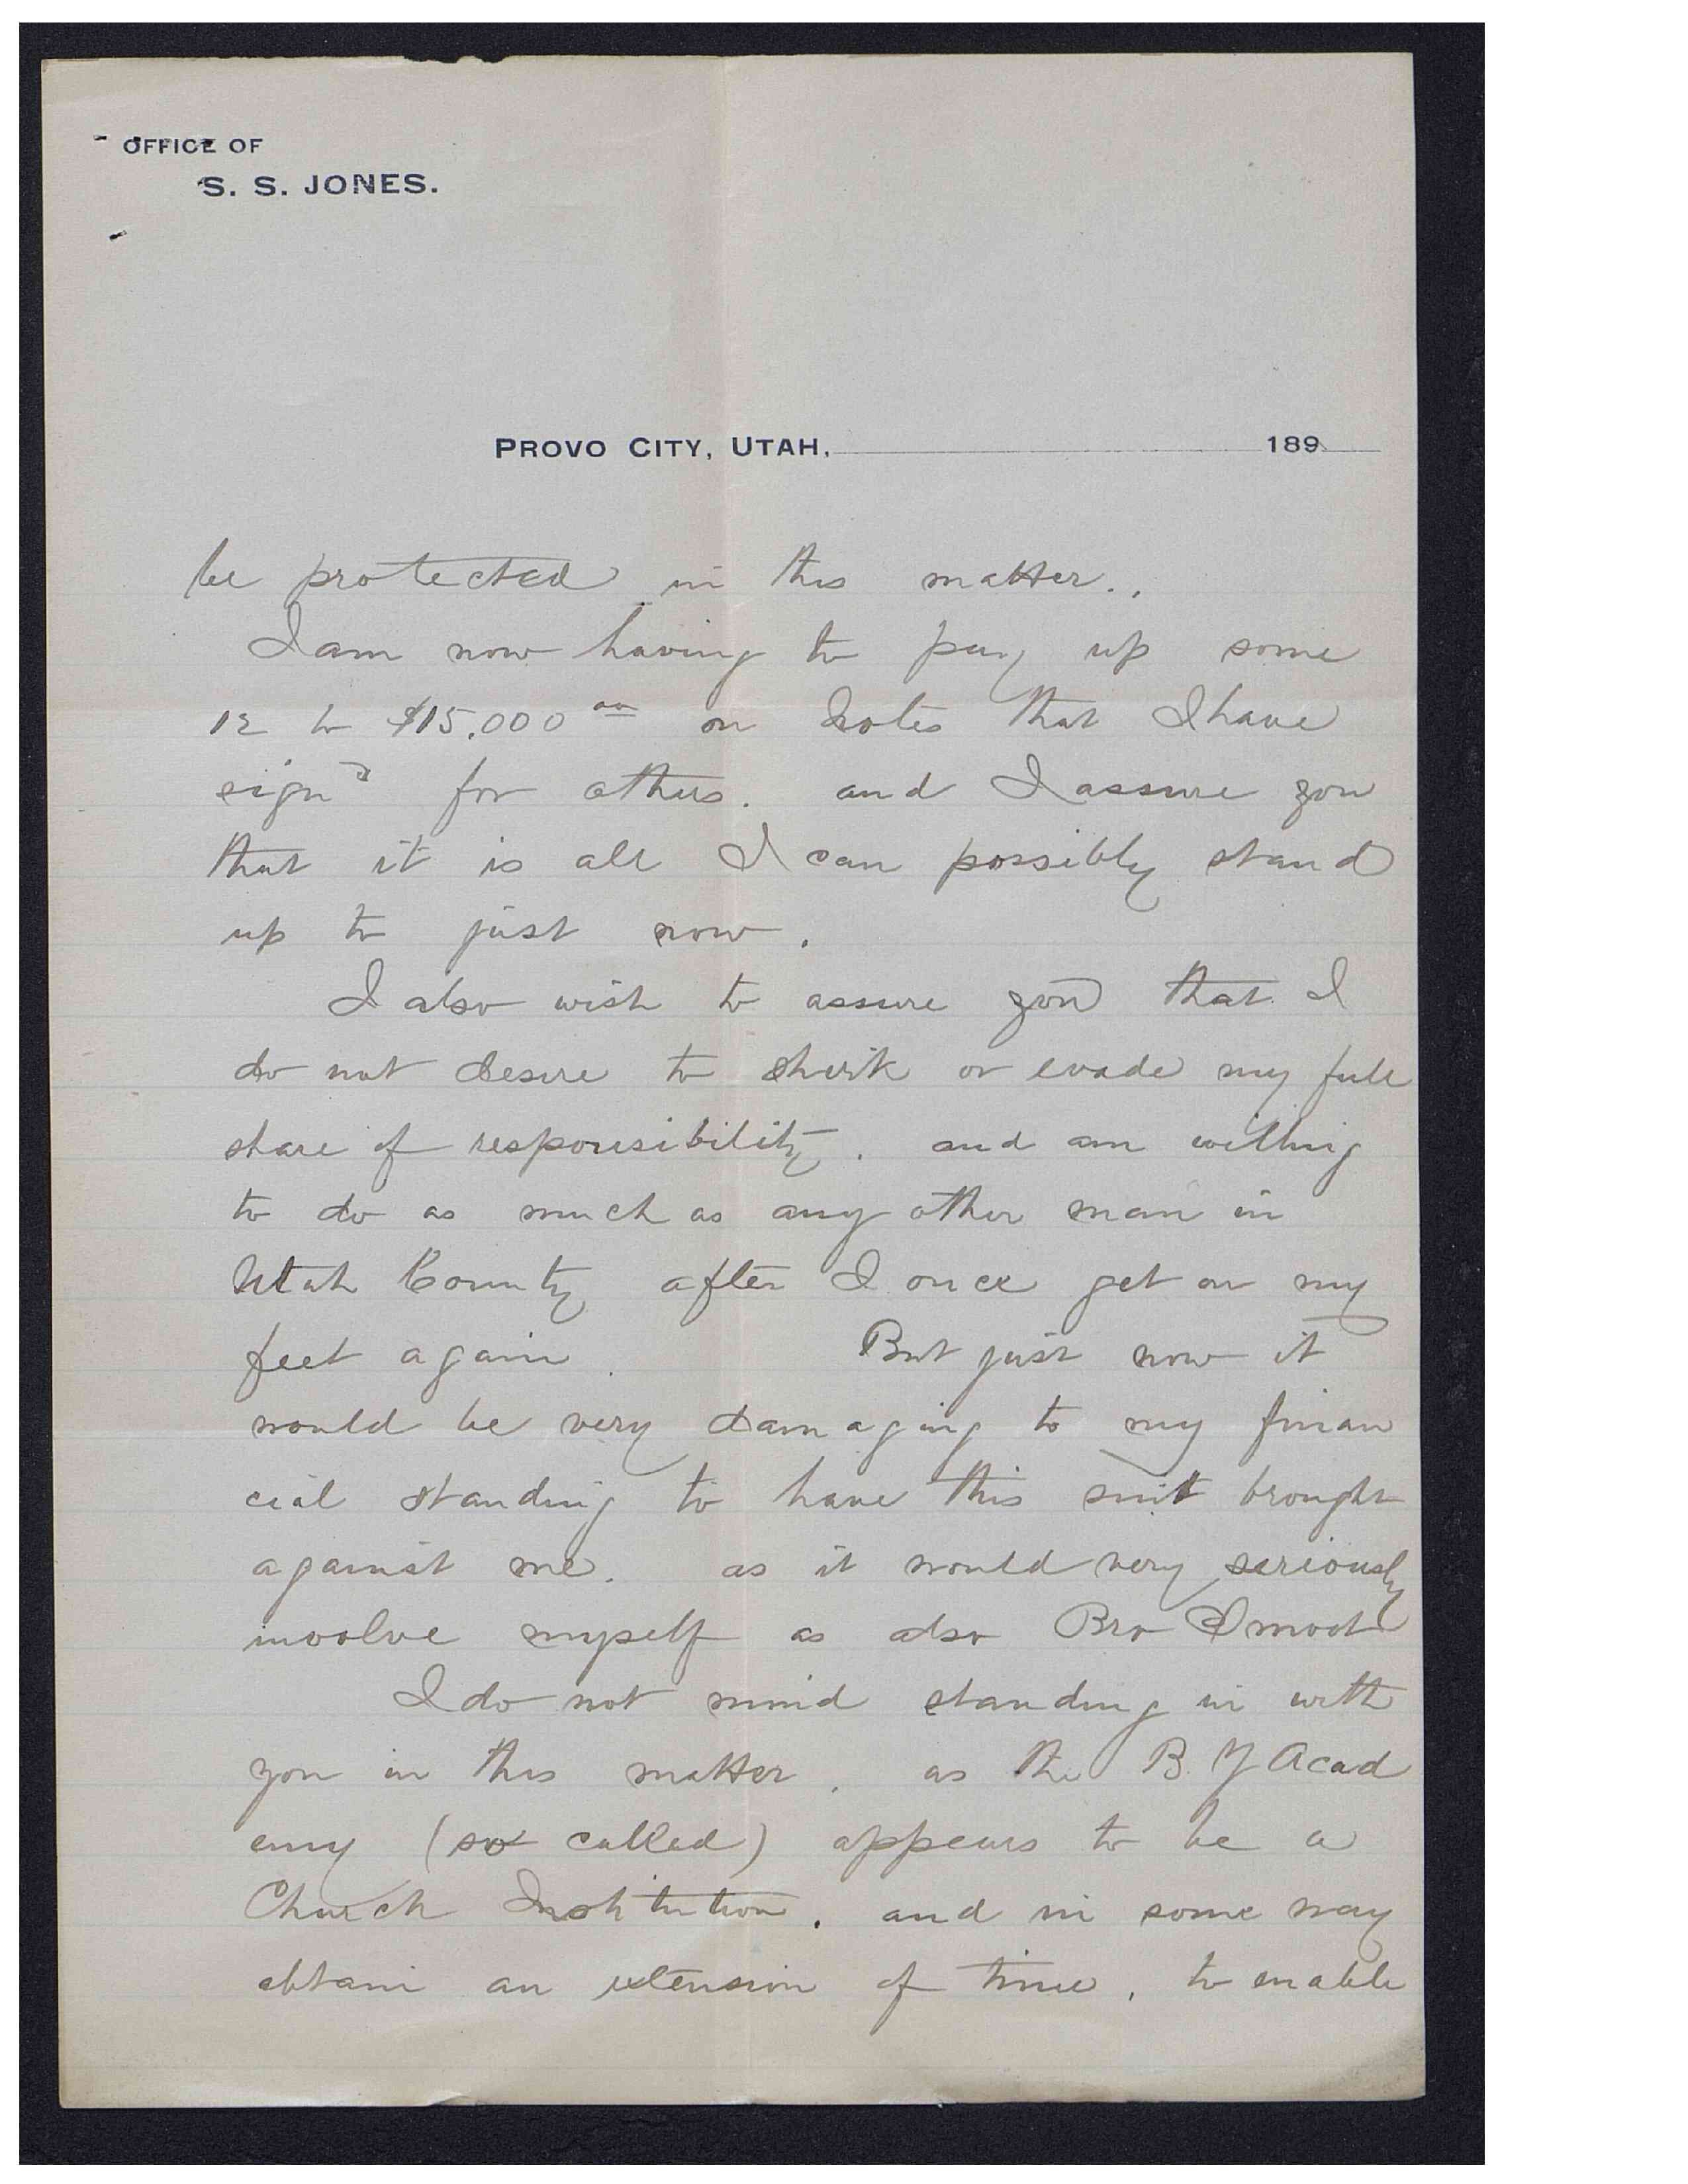 OFFICE OF
S. S. JONES.
PROVO CITY, UTAH, 189
be protected in this matter.,
I am now having to pay up some
12 to $15,000 00 on Notes that I have
signd for others. and I assure you
that it is all I can possibly stand
up to just now.
I also wish to assure you that I
do not desire to shirk or evade my full
share of responsibility. and am willing
to do as much as any other man in
Utah County after I once get on my
feet again. But just now it
would be very damaging to my finan
cial standing to have this suit brought
against me. as it would very seriously
involve myself as also Bro Smoot
I do not mind standing in with
you in this matter, as the B. Y Acad
emy (so called) appears to be a
Church Institution. and in some way
obtain an extension of time, to enable